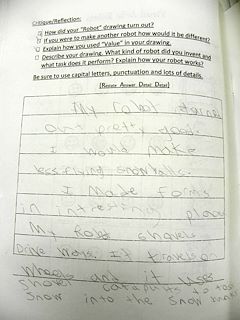 Critique/Reflection:
How did your "Robot" drawing turn out?
If you were to make another robot how would it be different?
Explain how you used "Value" in your drawing.
Describe your drawing. What kind of robot did you invent and
what task does it perform? Explain how your robot works?
Be sure to use capital letters, punctuation and lots of details.
(Review Answer, Detail, Detail)
My robot turned
out pretty good.
I would make
less flying snow balls.
I made forms
in intresting places
My Robot shovels
Drive ways. It travels on
wheels and it uses
shovel catapults to toss
snow into the snow